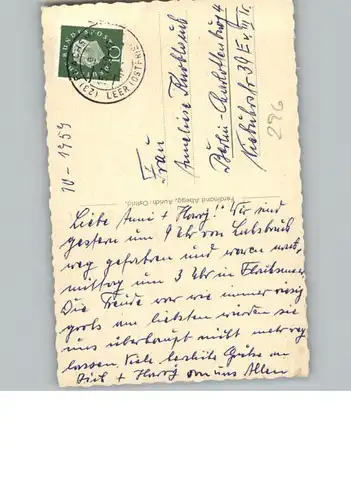 DEUTSCHE
BUNDESPOST
10
LEER (OSTFRIESL)
10-1959
Frau
Anneliese Knoblauch
Berlin-Charlottenburg 4
Niebuhrstr 39
296
Ferdinand Abegg, Aurich-Ostfrld.
Liebe Anni + Harry! Wir sind
gestern um 9 Uhr von
weg gefahren und waren nach-
mittag um 3 Uhr in
Die Freude war wie immer riesig
groß am liebsten würden sie
uns überhaupt nicht mehr weg
lassen. Viele herzliche Grüße an
Dich + Harry von uns Allen